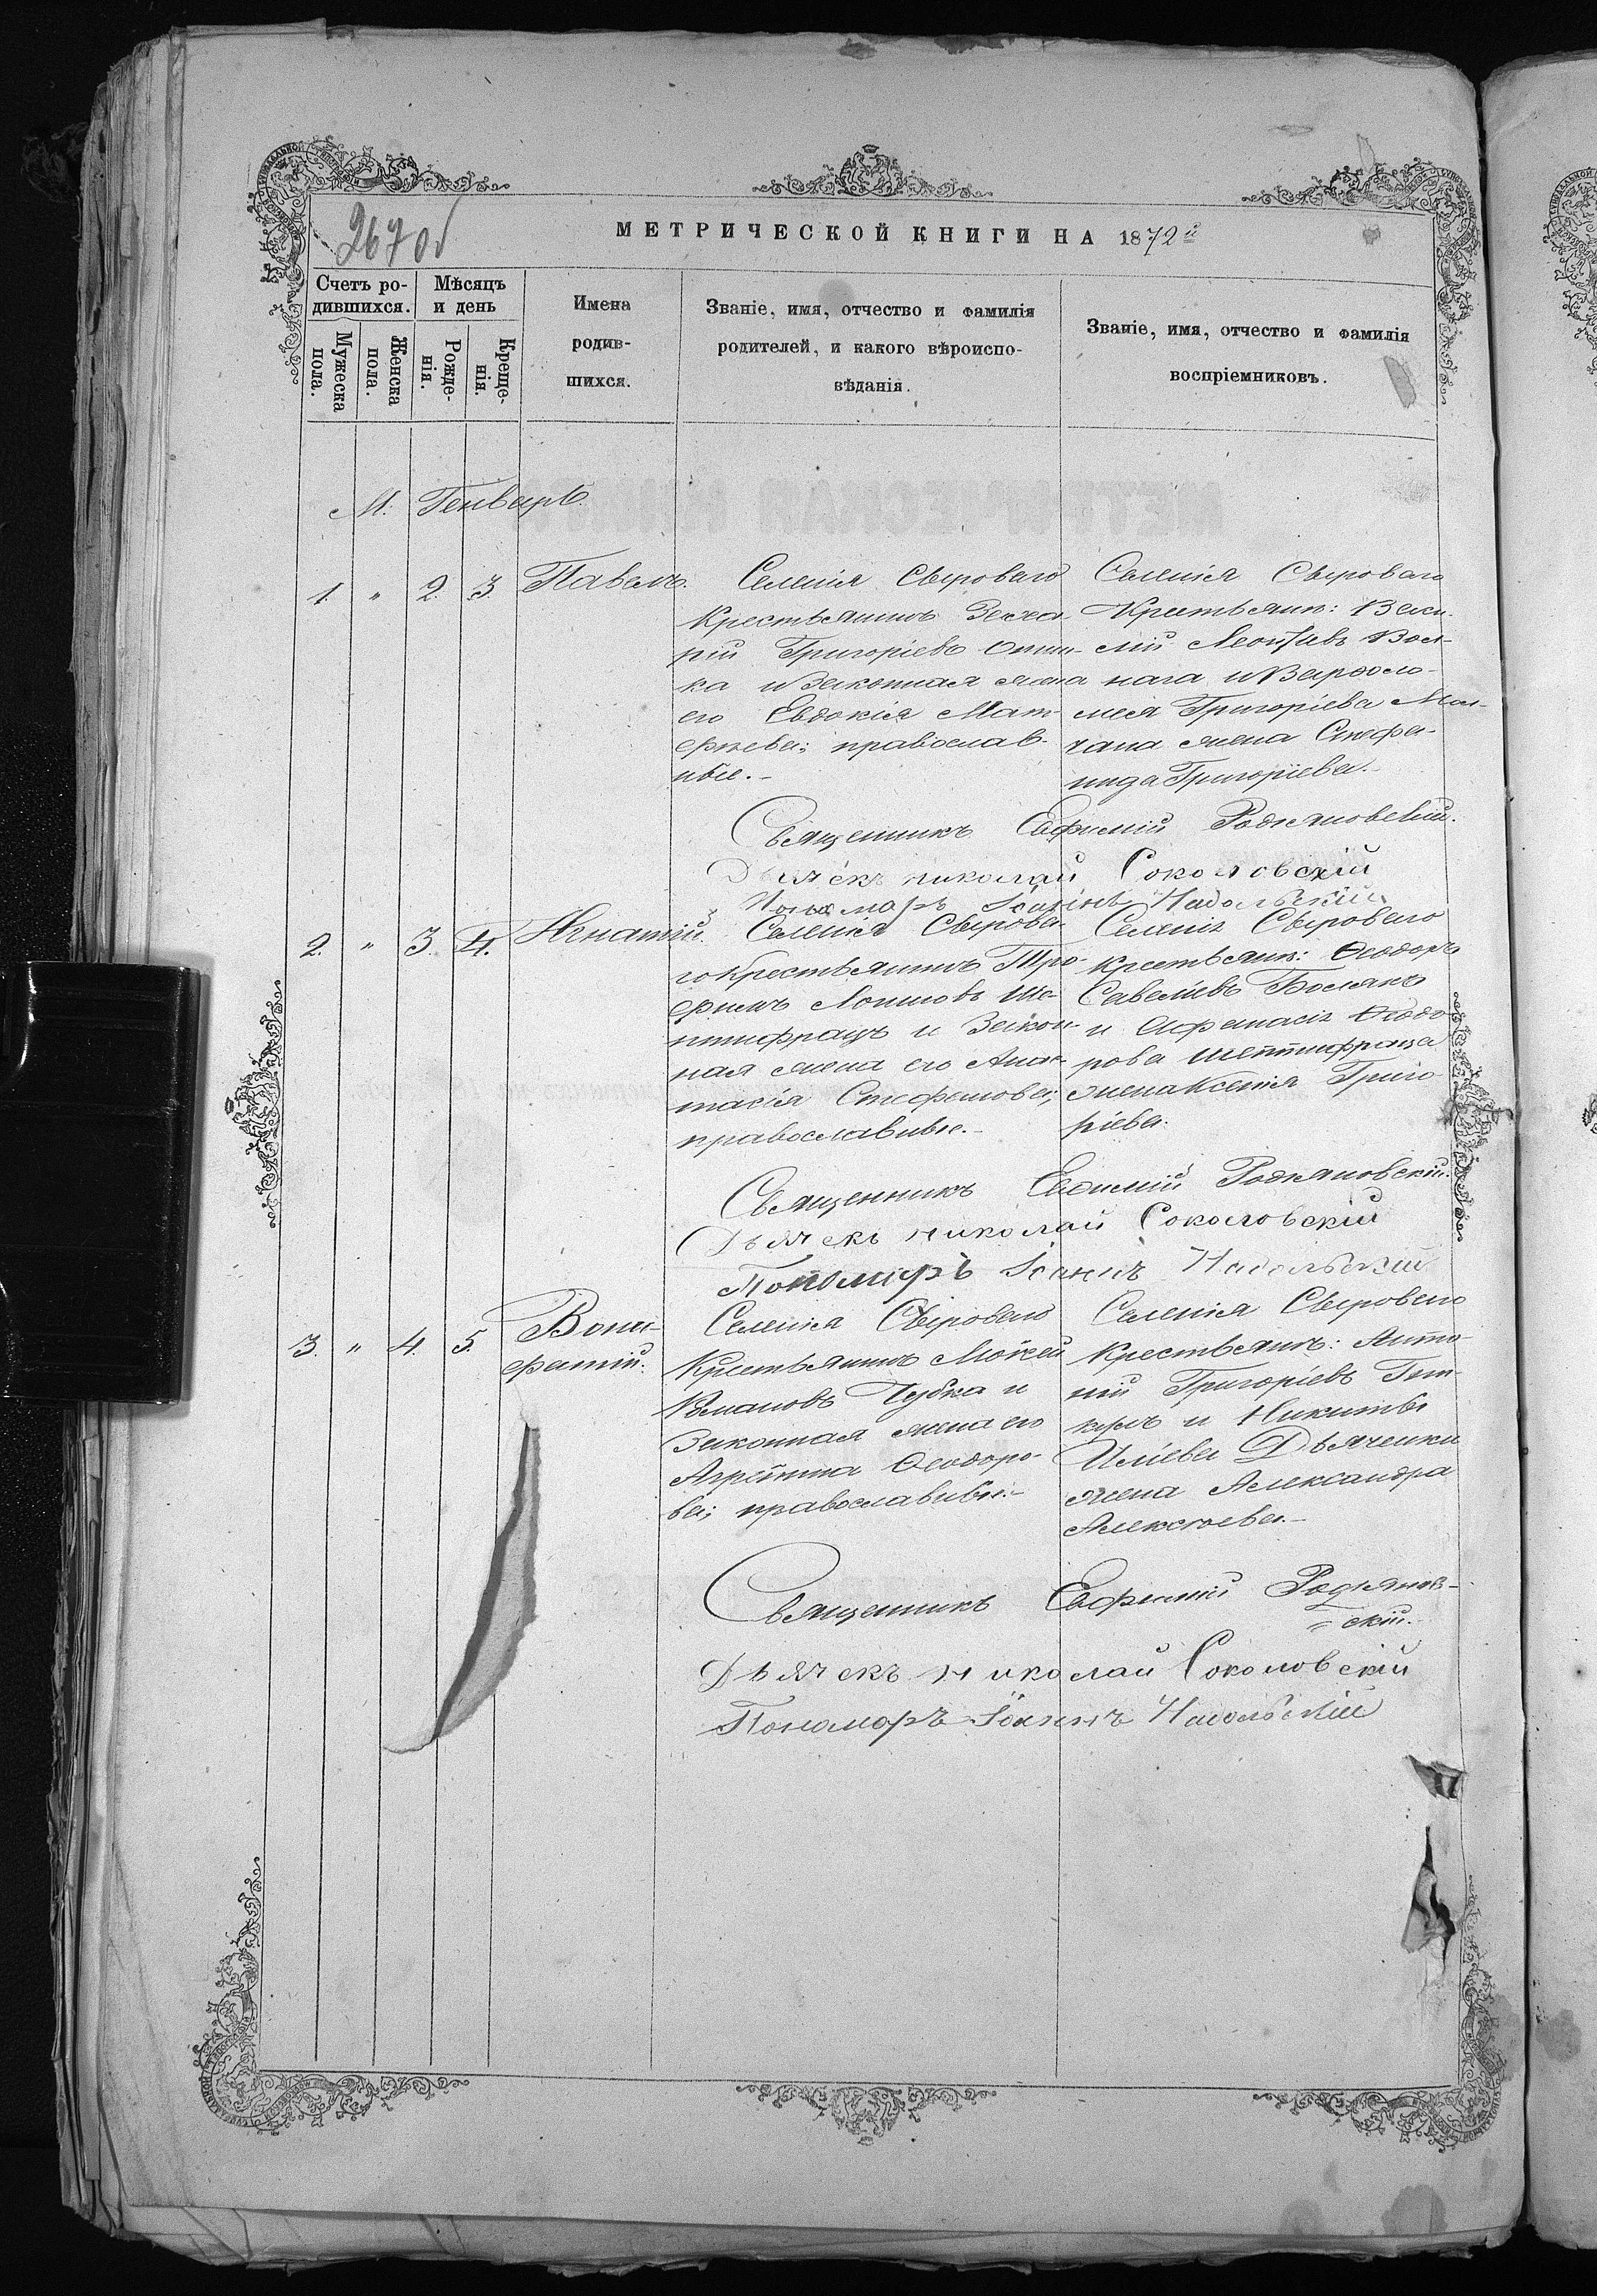 267 об
МЕТРИЧЕСКОЙ КНИГИ НА 1872й
Счетъ ро-
дившихся.
Мужеска
пола.
Женска
пола.
Мѣсяцъ
и день
Рожде-
нія.
Креще-
нія.
Имена
родив-
шихся.
Званіе, имя, отчество и фамилія
родителей, и какого вѣроиспо-
вѣданія.
Званіе, имя, отчество и фамилія
воспріемниковъ.
М. Генварь.
1. " 2. 3.
Павелъ.
Селенія Сыроваго
крестьянинъ Заха-
рій Григоріевъ
ка и законная жена
его Евдокія Мат-
фѣева; православ-
ные.-
Селенія Сыроваго
крестьянин: Васи-
лій Леонтіевъ Вол-
нага и Варфоло-
мея Григоріева Мол-
чана жена Стефа-
нида Григоріева.-
Священникъ Евфимій Родкяновскій.
Дьячекъ николай Соколовскій
Пономаръ Іоаннъ Надольскій
2. " 3. 4.
Игнатій.
Селенія Сырова-
го крестьянинъ Тро-
фимъ Логиновъ Ше-
птифрацъ и закон-
ная жена его Анас-
тасія Стефанова;
православные.-
Селенія Сыроваго
крестьянин: Ѳеодоръ
Савеліевъ Полякъ
и Афанасія Ѳеодо-
рова Шептифраца
жена Ксенія Григо-
ріева.
Священникъ Евфимій Родкяновскій.
Дьячекъ николай Соколовскій
Пономаръ Іоаннъ Надольскій
3. " 4. 5.
Вони-
фатій.
Селенія Сыроваго
крестьянинъ Мокей
Романовъ Чубка и
законная жена его
Агрипина Ѳеодоро-
ва; православные.-
Селенія Сыроваго
крестьянин: Анто-
ній Григоріевъ
и Никиты
Иліева Дьяченка
жена Александра
Алексѣева.-
Священникъ Евфимій Родкянов-
скій.
Дьячекъ николай Соколовскій
Пономоръ Іоаннъ Надольскій